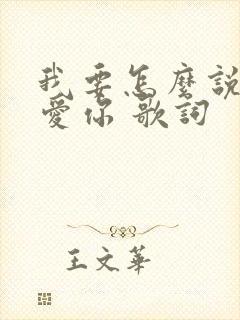 我要怎麼說
愛你 歌詞
王文華